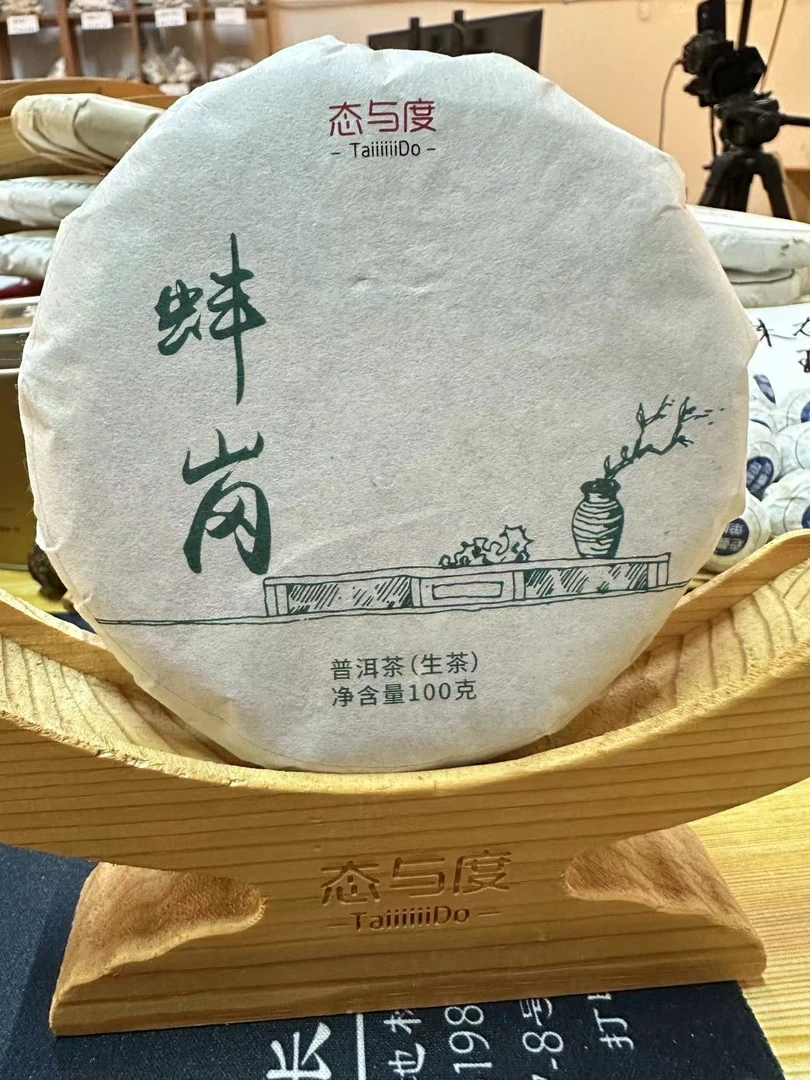 态与度
- TaiiiiiiDo -
蚌岗
普洱茶(生茶)
净含量100克
态与度
- TaiiiiiiDo -
长
198
-8号